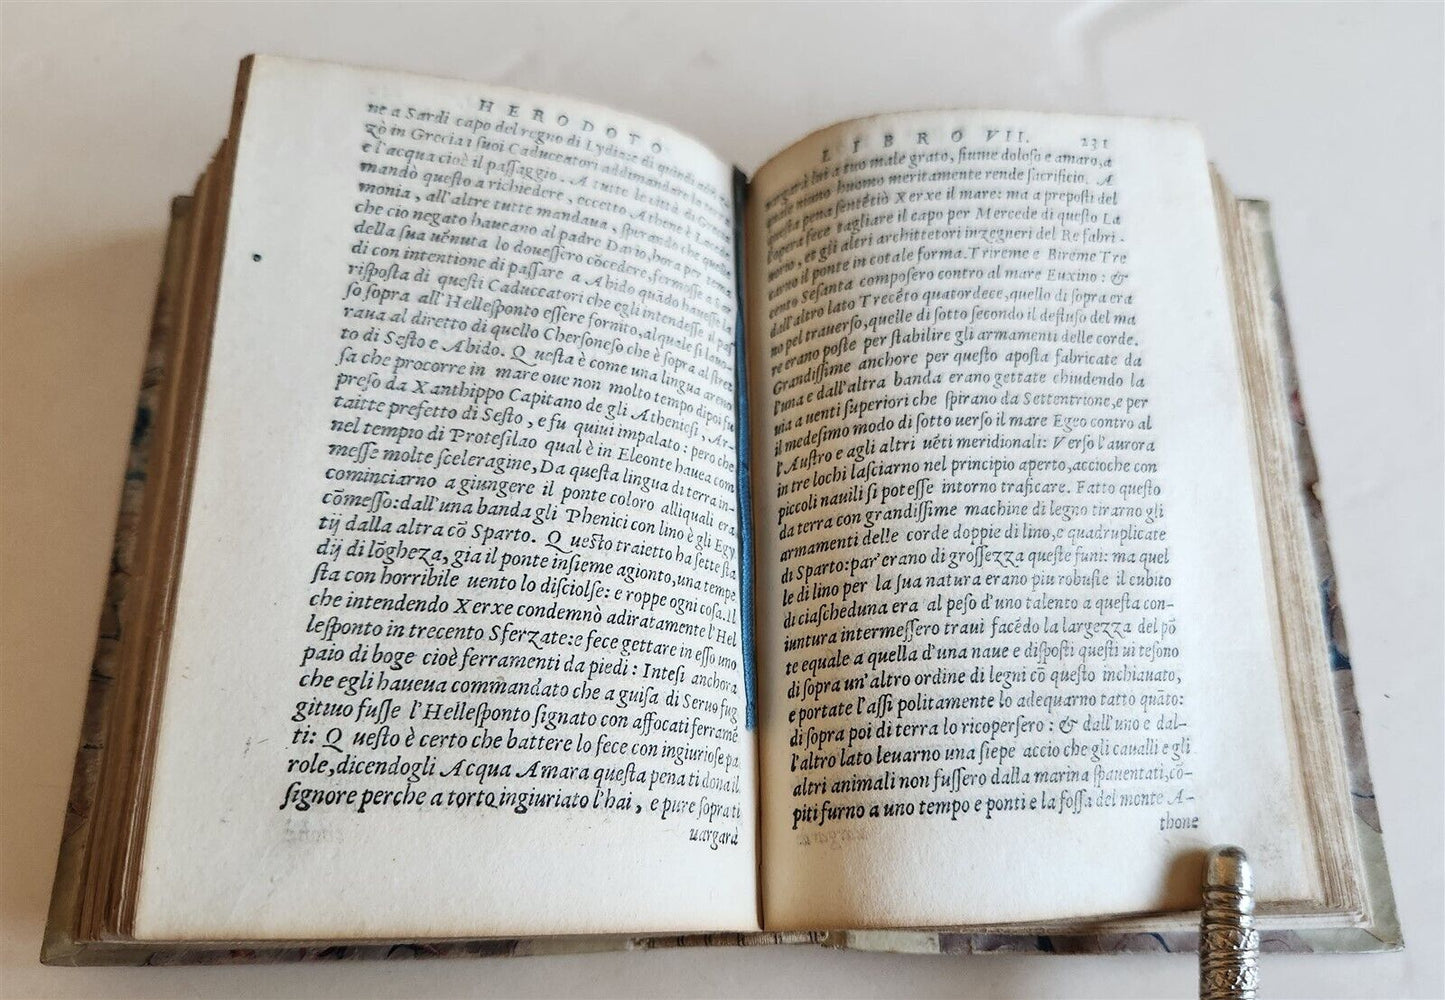 HERODOTO
ne a Sardi capo del regno di Lydia: di quindi
zò in Grecia i suoi Caduceatori addimandare la terra
e l'acqua cioè il paſſaggio. A tutte le città di Grecia
mandò queſto a richiedere, eccetto Athene è Lacede
monia, all'altre tutte mandaua, ſperando che quello
che cio negato haueano al padre Dario, hora per timor
della ſua uẽnuta lo doueſſero cõcedere, fermoſſe a Sar
di con intentione di paſſare a Abido quãdo haueſſe la
riſpoſta di queſti Caduceatori che egli intendeſſe il paſ
ſo ſopra all'Helleſponto eſſere fornito, al quale ſi lauo
raua al diretto di quello Cherſoneſo che è ſopra al ſtret
to di Seſto e Abido. Queſta è come una lingua areno
ſa che procorre in mare oue non molto tempo dipoi fu
preſo da Xanthippo Capitano de gli Athenieſi, Ar-
taitte prefetto di Seſto, e fu quiui impalato: pero che
nel tempio di Proteſilao qual è in Eleonte hauea com
meſſe molte ſceleragine, Da queſta lingua di terra in-
cominciarno a giungere il ponte coloro alliquali era
cõmeſſo: dall'una banda gli Phenici con lino è gli Egy
tij dalla altra cõ Sparto. Queſto traietto ha ſette ſta
dij di lõgheza, gia il ponte inſieme agionto, una tempe
ſta con horribile uento lo diſciolſe: e roppe ogni coſa. Il
che intendendo Xerxe condemnò adiratamente l'Hel
leſponto in trecento Sferzate: e fece gettare in eſſo uno
paio di boge cioè ferramenti da piedi: Inteſi anchora
che egli haueua commandato che a guiſa di Seruo fug
gitiuo fuſſe l'Helleſponto ſignato con affocati ferramẽ
ti: Queſto è certo che battere lo fece con ingiurioſe pa
role, dicendogli Acqua Amara queſta pena ti dona il
ſignore perche a torto ingiuriato l'hai, e pure ſopra ti
uargarà
LIBRO VII. 231
uargarà lui a tuo male grato, fiume doloſo e amaro, a
quale niuno huomo meritamente rende ſacrificio. A
queſta pena ſentẽtiò Xerxe il mare: ma a prepoſti del
l'opera fece tagliare il capo per Mercede di queſto La
uorio, et gli altri architettori inzegneri del Re fabri-
carno il ponte in cotale forma. Trireme e Bireme Tre
cento Seſanta compoſero contro al mare Euxino: &
dall'altro lato Trecẽto quatordece, quello di ſopra era
no pel trauerſo, quelle di ſotto ſecondo il defluſo del ma
re erano poſte per ſtabilire gli armamenti delle corde.
Grandiſſime anchore per queſto apoſta fabricate da
l'una e dall'altra banda erano gettate chiudendo la
uia a uenti ſuperiori che ſpirano da Settentrione, e per
il medeſimo modo di ſotto uerſo il mare Egeo contro al
l'Auſtro e agli altri uẽti meridionali: Verſo l'aurora
in tre lochi laſciarno nel principio aperto, accioche con
piccoli nauili ſi poteſſe intorno traficare. Fatto queſto
da terra con grandiſſime machine di legno tirarno gli
armamenti delle corde doppie di lino, e quadruplicate
di Sparto: par'erano di groſſezza queſte funi: ma quel
le di lino per la ſua natura erano piu robuſte il cubito
di ciaſcheduna era al peſo d'uno talento a queſta con-
iuntura intermeſſero traui facẽdo la largezza del põ
te equale a quella d'una naue e diſpoſti queſti ui teſono
di ſopra un'altro ordine di legni cõ queſto inchiauato,
e portate l'aſſi politamente lo adequarno tatto quãto:
di ſopra poi di terra lo ricoperſero: & dall'uno e dal-
l'altro lato leuarno una ſiepe accio che gli caualli e gli
altri animali non fuſſero dalla marina ſpauentati, cõ-
piti furno a uno tempo e ponti e la foſſa del monte A-
thone